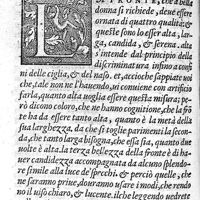 DI FRONTE, che à bella
donna si richiede, deue essere
ornata di quattro qualità: &
queste sono l'esser alta, lar
ga, candida, & serena. alta
s'intende dal principio della
discriminatura insino a con
ni delle ciglia, & del naso. et, accioche sappiate uoi
che, tale non ne l'hauendo, ui conuiene con artificio
farla, quanto alta uoglia essere questa misura; pe
rò dicono coloro, che ne hanno cognitione, che la fron
te ha da essere tanto alta, quanto è la metà della
sua larghezza, da che si toglie parimenti la secon
da, che tanto larga bisogna, che essa sia, quanto due
uolte è alta. la terza bellezza della fronte è di ha
uer candidezza accompagnata da alcuno splendo-
re simile alla luce de specchi. & perciò quelle, che
ne saranno priue, douranno usare i modi, che rendo
no il uiso chiaro, & lucente. il che leggendo uedrete